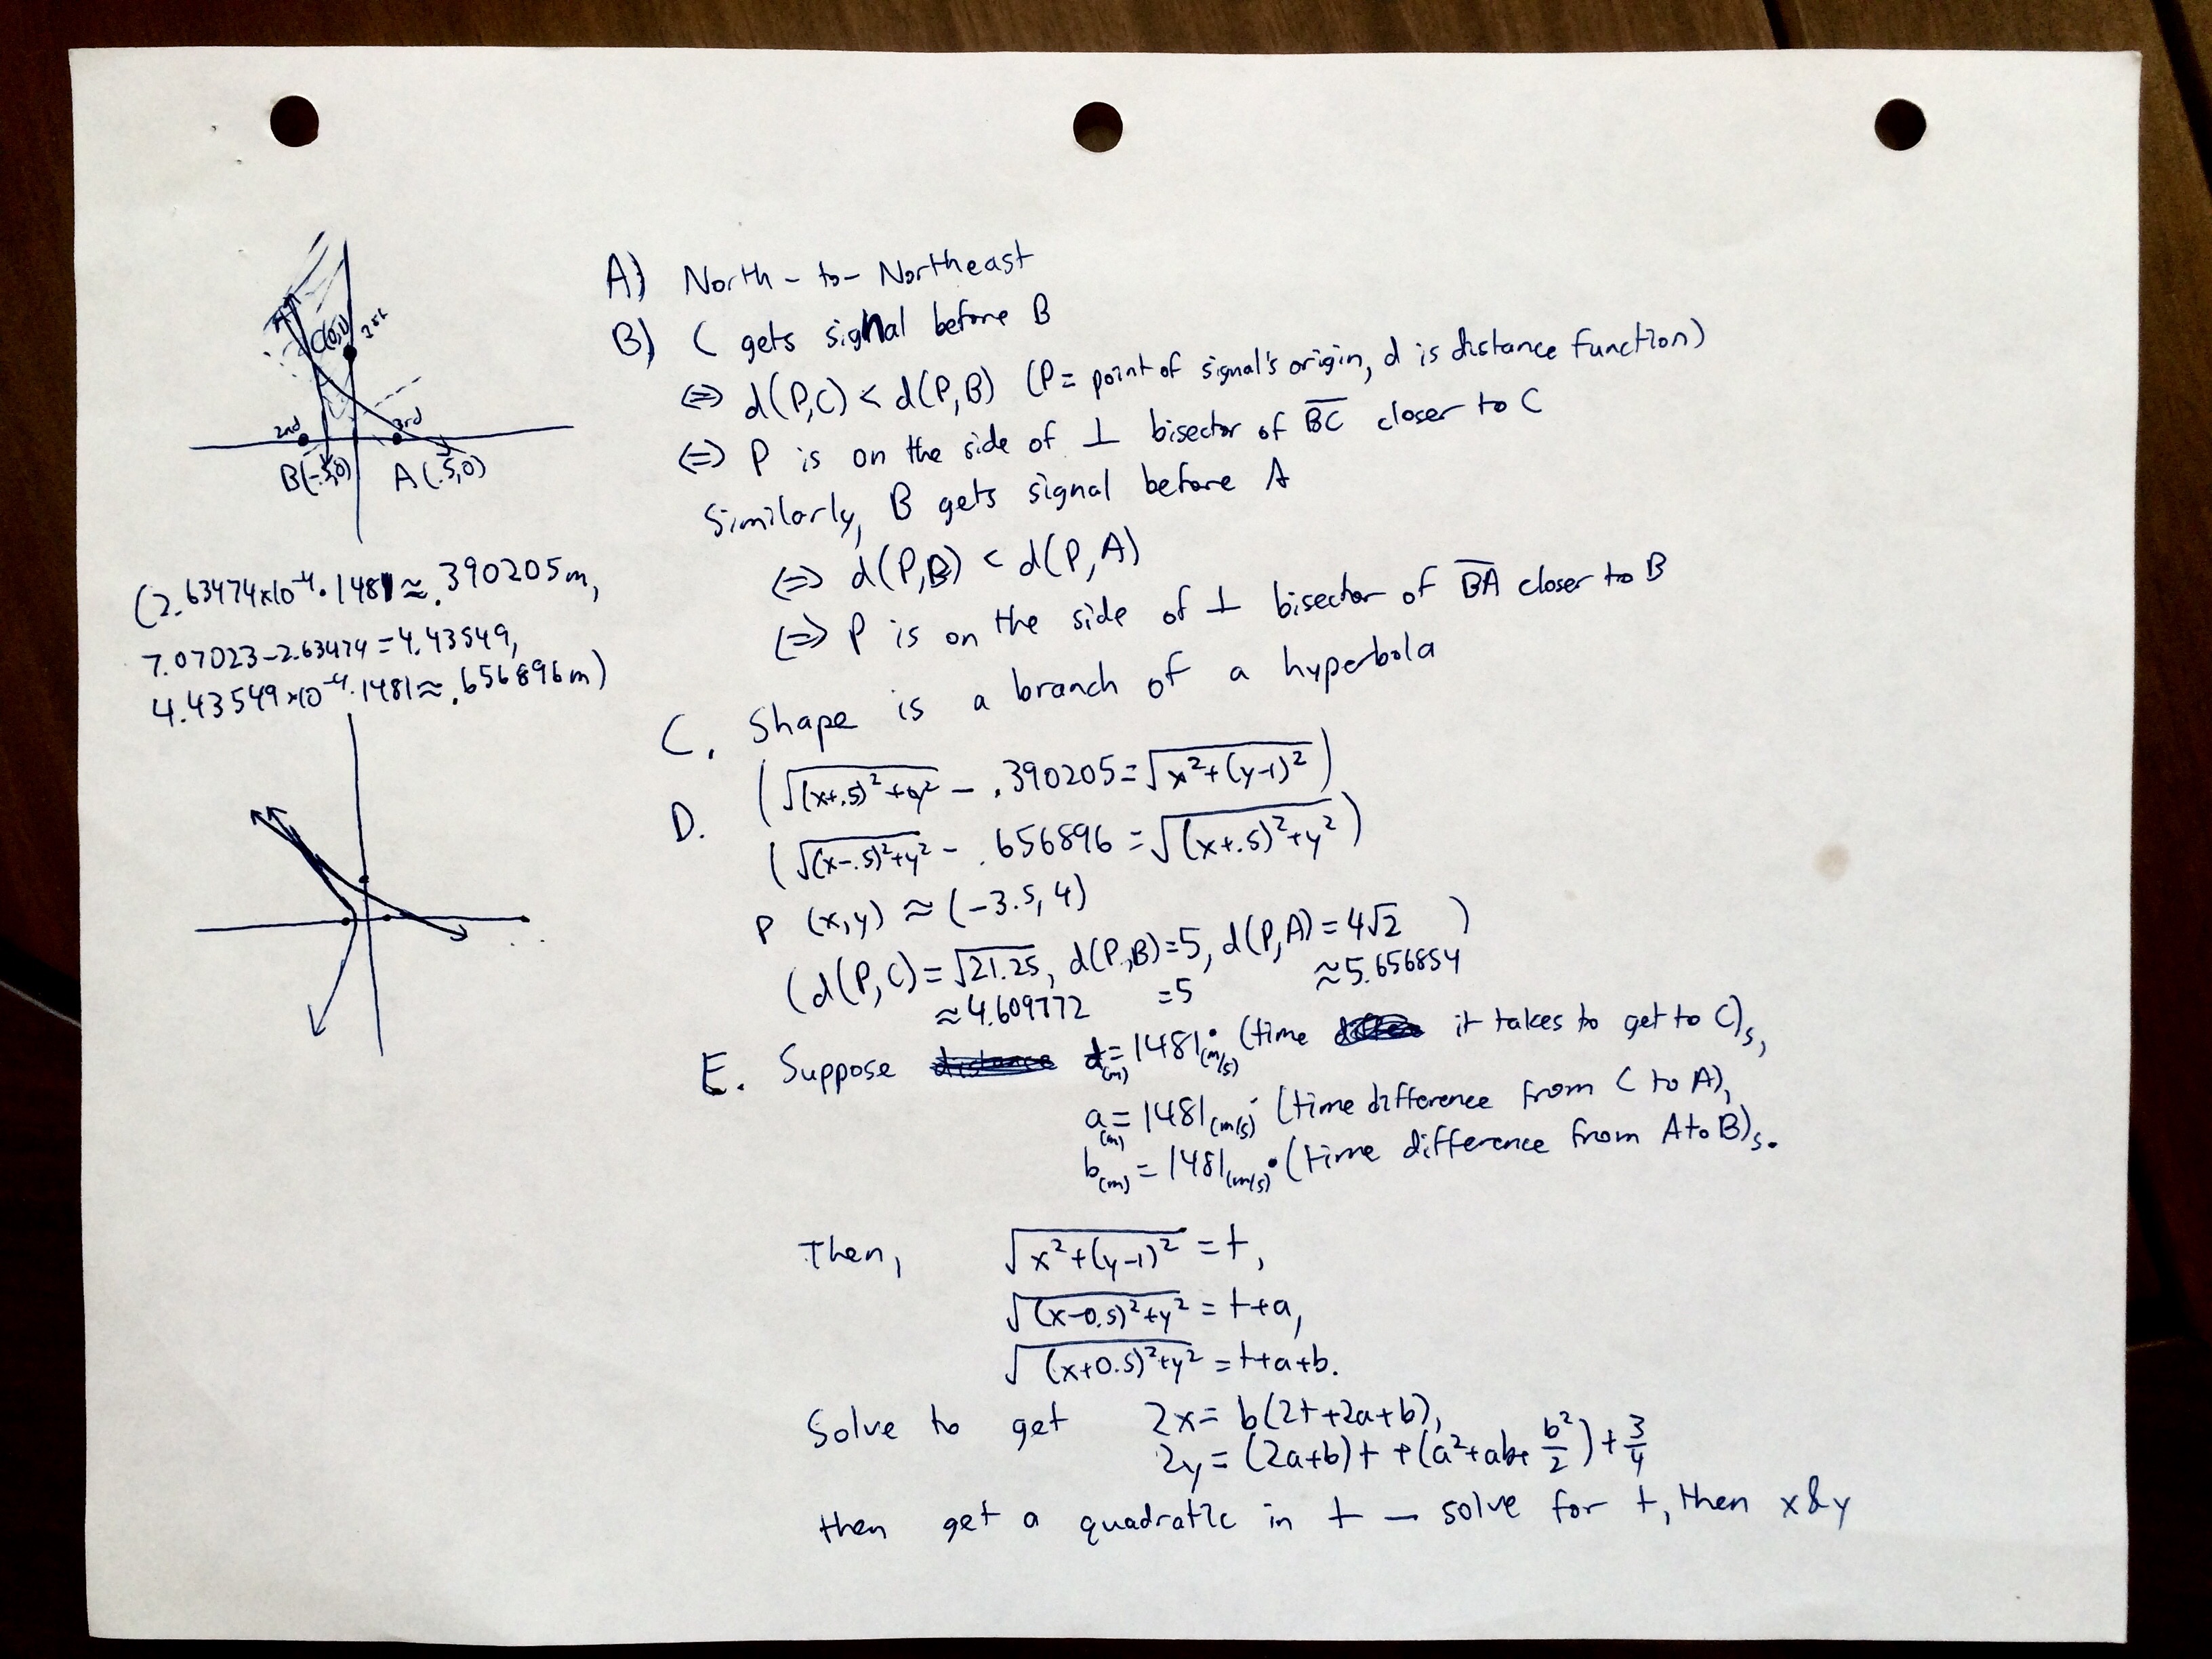 C(0,1) 1st
2nd
3rd
B(-.5,0) A(.5,0)
(2.63474×10⁻⁴·1481≈.390205m,
7.07023-2.63474=4.43549,
4.43549×10⁻⁴·1481≈.656896m)
A) North-to-Northeast
B) C gets signal before B
⇔ d(P,C) < d(P,B) (P= point of signal's origin, d is distance function)
⇔ P is on the side of ⊥ bisector of B̅C̅ closer to C
Similarly, B gets signal before A
⇔ d(P,B) < d(P,A)
⇔ P is on the side of ⊥ bisector of B̅A̅ closer to B
C. Shape is a branch of a hyperbola
D. (√((x+.5)²+y²) - .390205=√(x²+(y-1)²))
(√((x-.5)²+y²) - .656896=√((x+.5)²+y²))
P (x,y) ≈ (-3.5,4)
(d(P,C)=√21.25, d(P,B)=5, d(P,A)=4√2)
≈4.609772 =5 ≈5.656854
E. Suppose t(m)=1481(m/s)·(time it takes to get to C)s,
a(m)=1481(m/s)·(time difference from C to A),
b(m)=1481(m/s)·(time difference from A to B)s.
Then, √(x²+(y-1)²) =t,
√((x-0.5)²+y²) = t+a,
√((x+0.5)²+y²) = t+a+b.
Solve to get 2x= b(2t+2a+b),
2y= (2a+b)t +(a²+ab+b²/2)+3/4
then get a quadratic in t - solve for t, then x&y